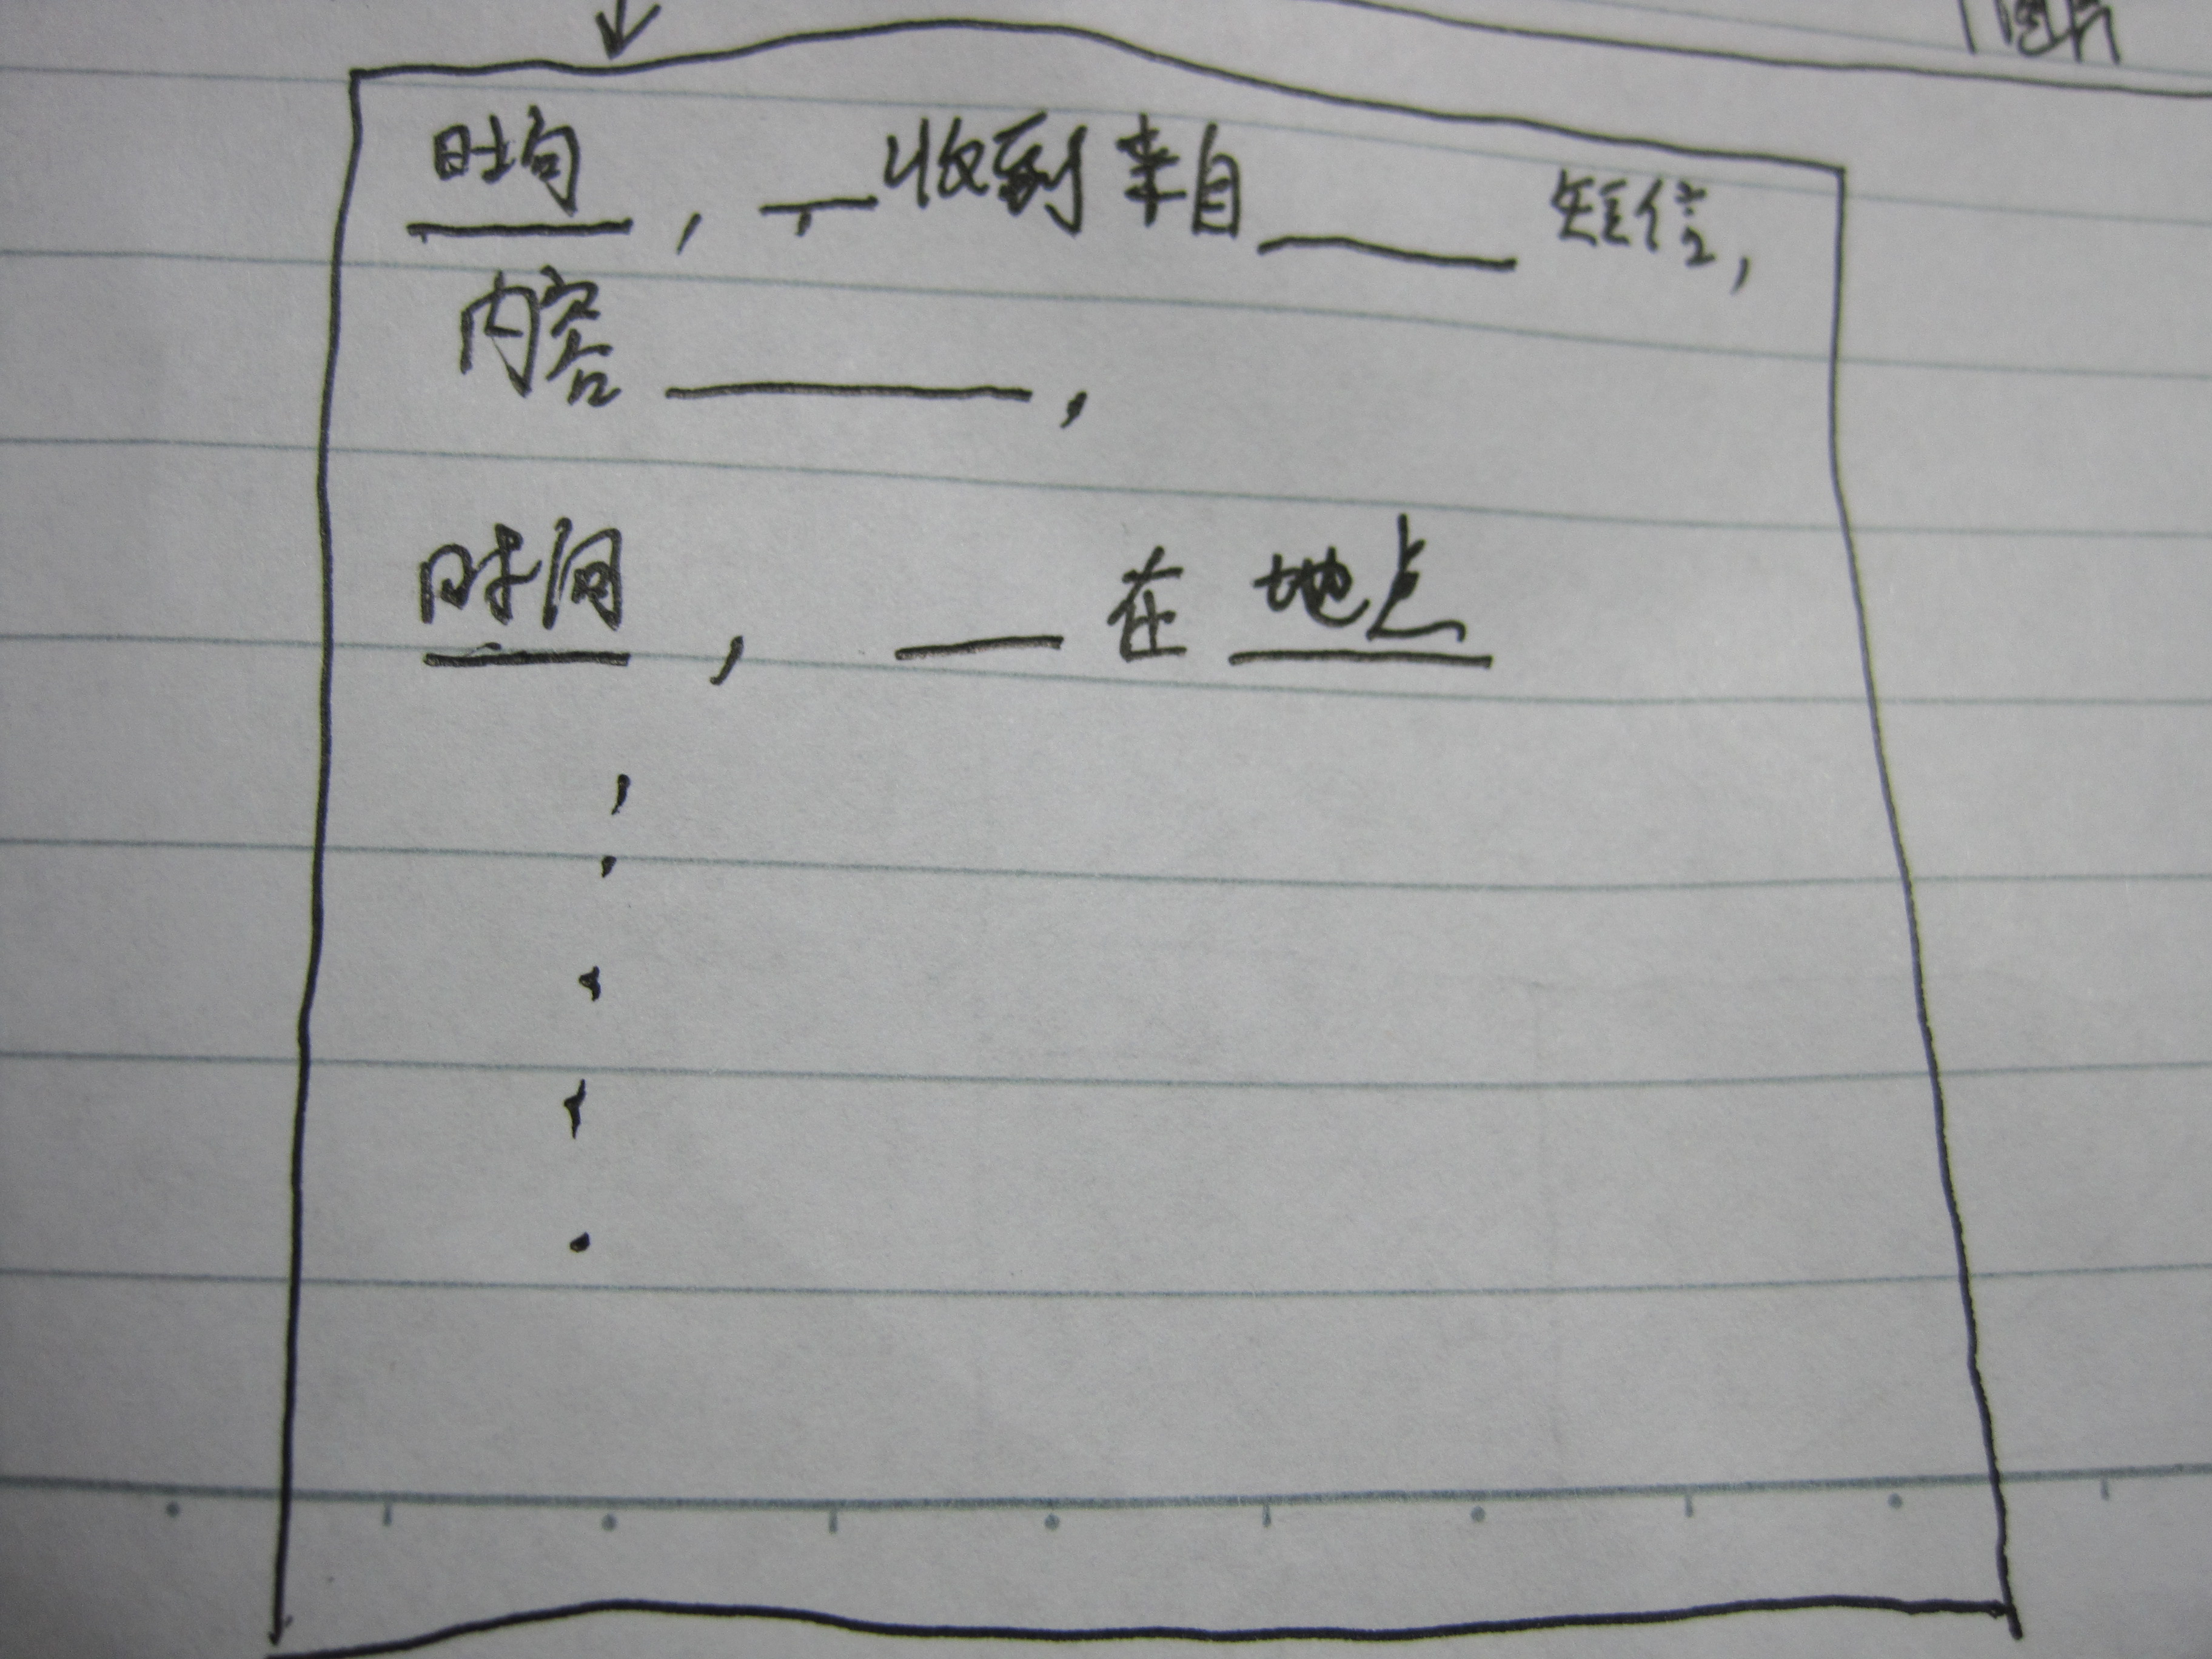 图片
时间, ___收到来自______短信,
内容________,
时间, ___在地点